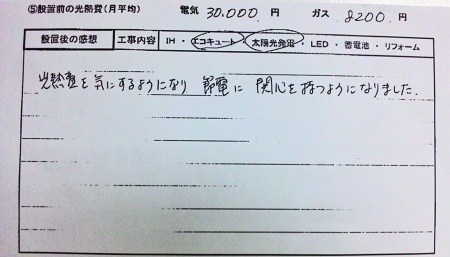 ⑤設置前の光熱費(月平均) 電気 30.000. 円 ガス 8200. 円
設置後の感想 工事内容 IH・エコキュート・太陽光発電・LED・蓄電池・リフォーム
光熱費を気にするようになり 節電に 関心を持つようになりました.